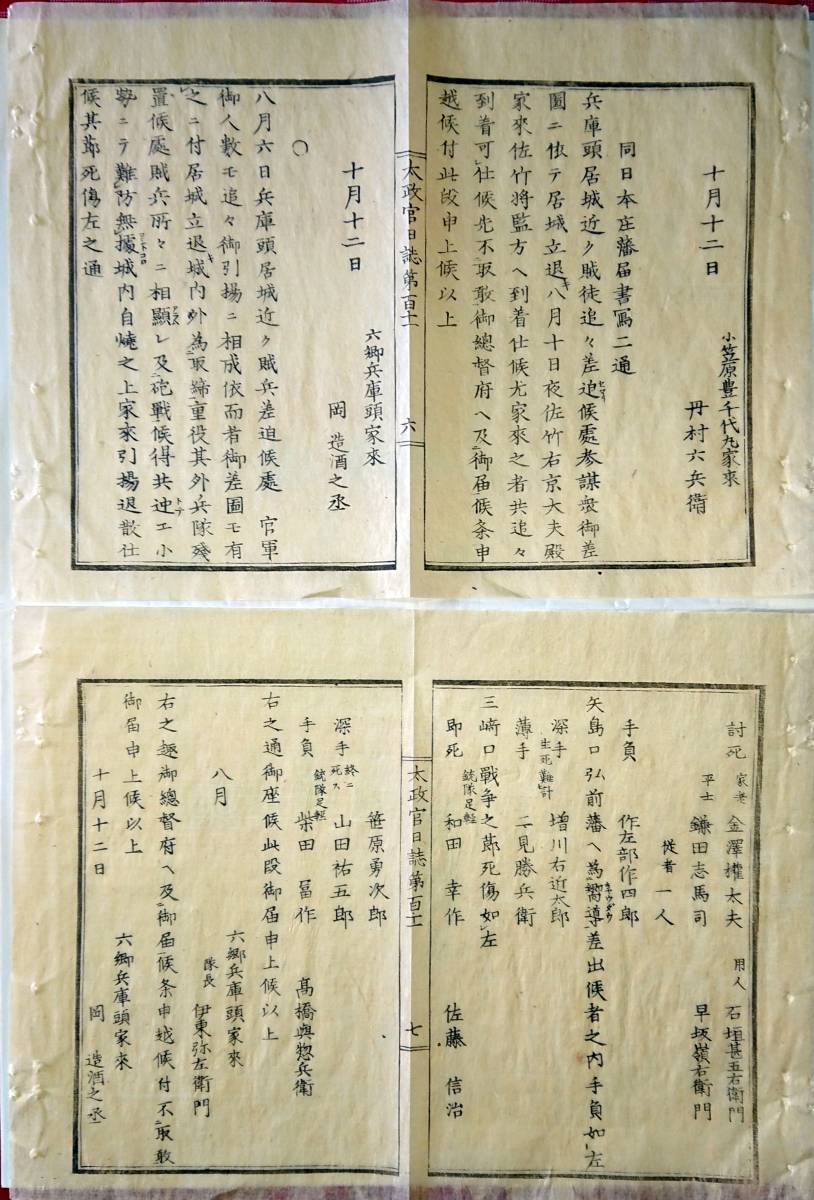 十月十二日
小笠原豊千代丸家來
丹村六兵衛
同日本庄藩届書寫二通
兵庫頭居城近ク賊徒追々差迫候處參謀衆御差
圖ニ依テ居城立退キ八月十日夜佐竹右京大夫殿
家來佐竹將監方ヘ到着仕候尤家來之者共追々
到着可仕候先不取敢御總督府ヘ及御届候条申
越候付此段申上候以上
太政官日誌第百十一
六
六郷兵庫頭家來
十月十二日
岡 造酒之丞
〇
八月六日兵庫頭居城近ク賊兵差迫候處 官軍
御人數モ追々御引揚ニ相成依而者御差圖モ有
之ニ付居城立退キ城内外為取締重役其外兵隊殘
置候處賊兵所々ニ相顯レ及砲戰候得共迚エ小
勢ニテ難防無據城内自燒之上家來引揚退散仕
候其節死傷左之通
討死 家老 金澤權太夫 用人 石垣甚五右衛門
平士 鎌田志馬司 早坂嶺右衛門
從者 一人
手負 作左部作四郎
矢島口弘前藩ヘ為嚮導差出候者之内手負如左
深手 生死難計 増川右近太郎
薄手 二見勝兵衛
三﨑口戰爭之節死傷如左
即死 銃隊足軽 和田幸作 佐藤信治
太政官日誌第百十一
七
笹原勇次郎
深手 終ニ死ス 山田祐五郎
手負 銃隊足軽 柴田冨作 髙橋與惣兵衛
右之通御座候此段御届申上候以上
六郷兵庫頭家來
八月 隊長 伊東弥左衛門
右之趣御總督府ヘ及御届候条申越候付不取敢
御届申上候以上
六郷兵庫頭家來
十月十二日 岡 造酒之丞